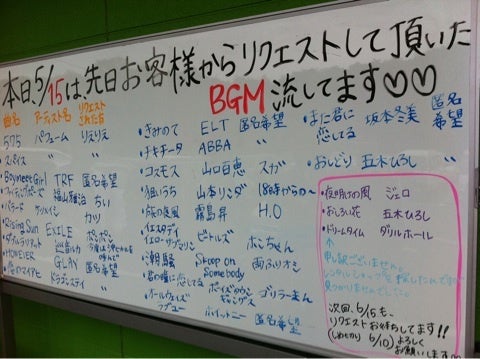 本日、5/15は先日お客様からリクエストして頂いた
BGM 流してます♡♡
曲名 アーティスト名 リクエストされた方
575 パフューム りえりえ
・スパイス 〃 〃
・Boymeet Girl TRF 匿名希望
・ファイティングポーズ 福山雅治 ちい
・バラード ケツメイシ かつ
・Rising Sun EXILE ポンポン
・HOWEVER GLAY 匿名希望
・恋のマイアヒ 匿名希望
・きみのて ELT 匿名希望
・チキチータ ABBA 〃
・コスモス 山口百恵 スガ
・狙いうち 山本リンダ
・旅の夜風 霧島昇 H.O
・イエスタデイ
イエローサブマリン ビートルズ
・潮騒 Skoop on Somebody
・君の瞳に恋してる ボーイズタウンギャング ゴリラーまん
・オールウェイズラブユー ホイットニー 匿名希望
・また君に恋してる 坂本冬美 匿名希望
・おしどり 五木ひろし 〃
・夜明けの風 ジェロ
・おしろい花 五木ひろし
・ドリームタイム ダリルホール
申し訳ございません。
レンタルショップを探したんですが
見つかりませんでした。
次回、6/15も、
リクエストお待ちしてます!!
(しめきり 6/10) よろしく
お願いします